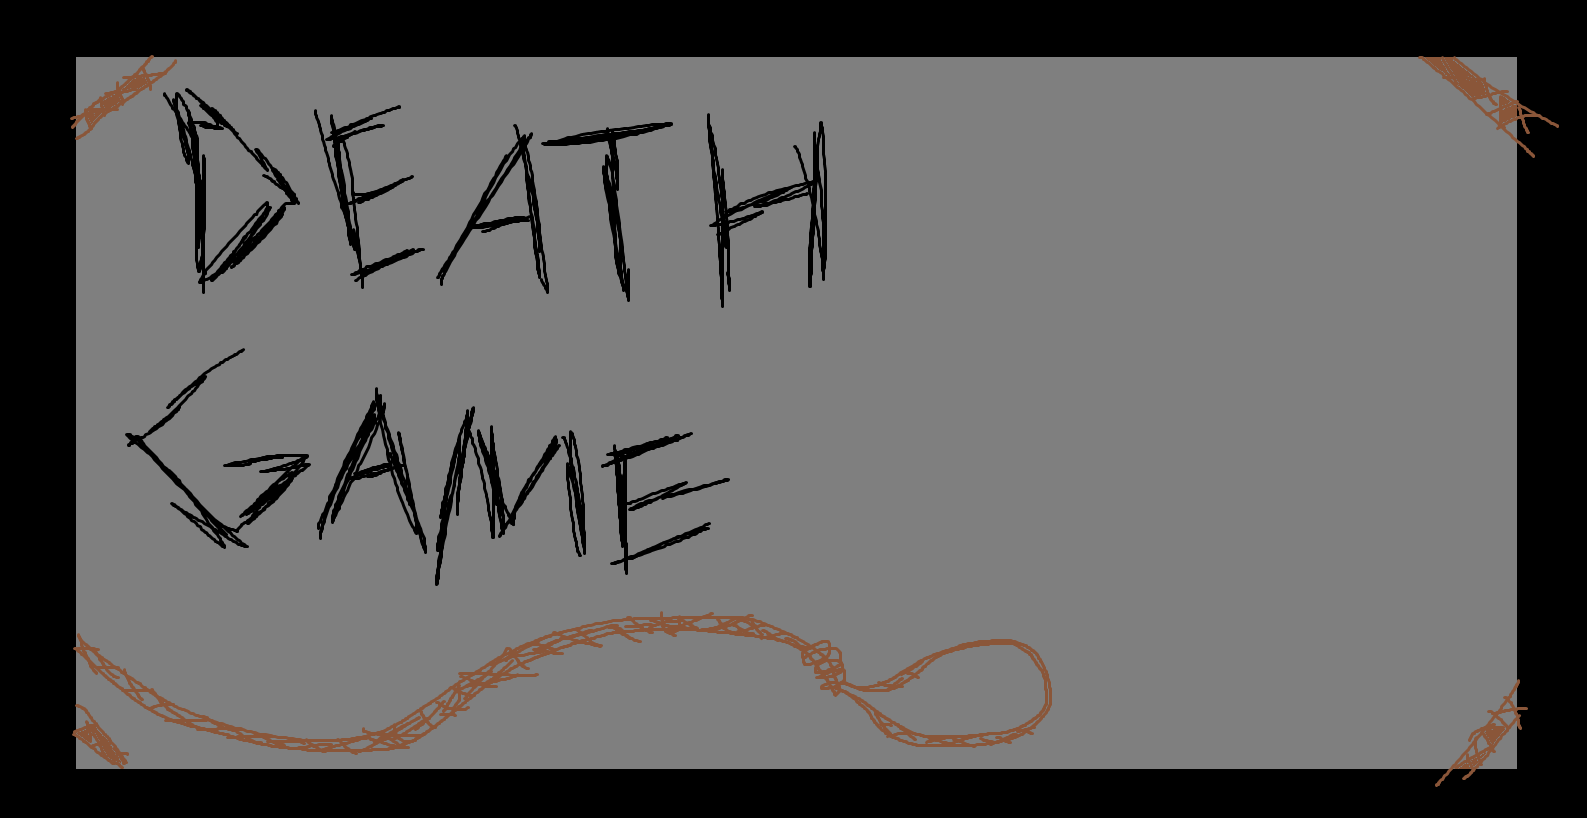 DEATH
GAME